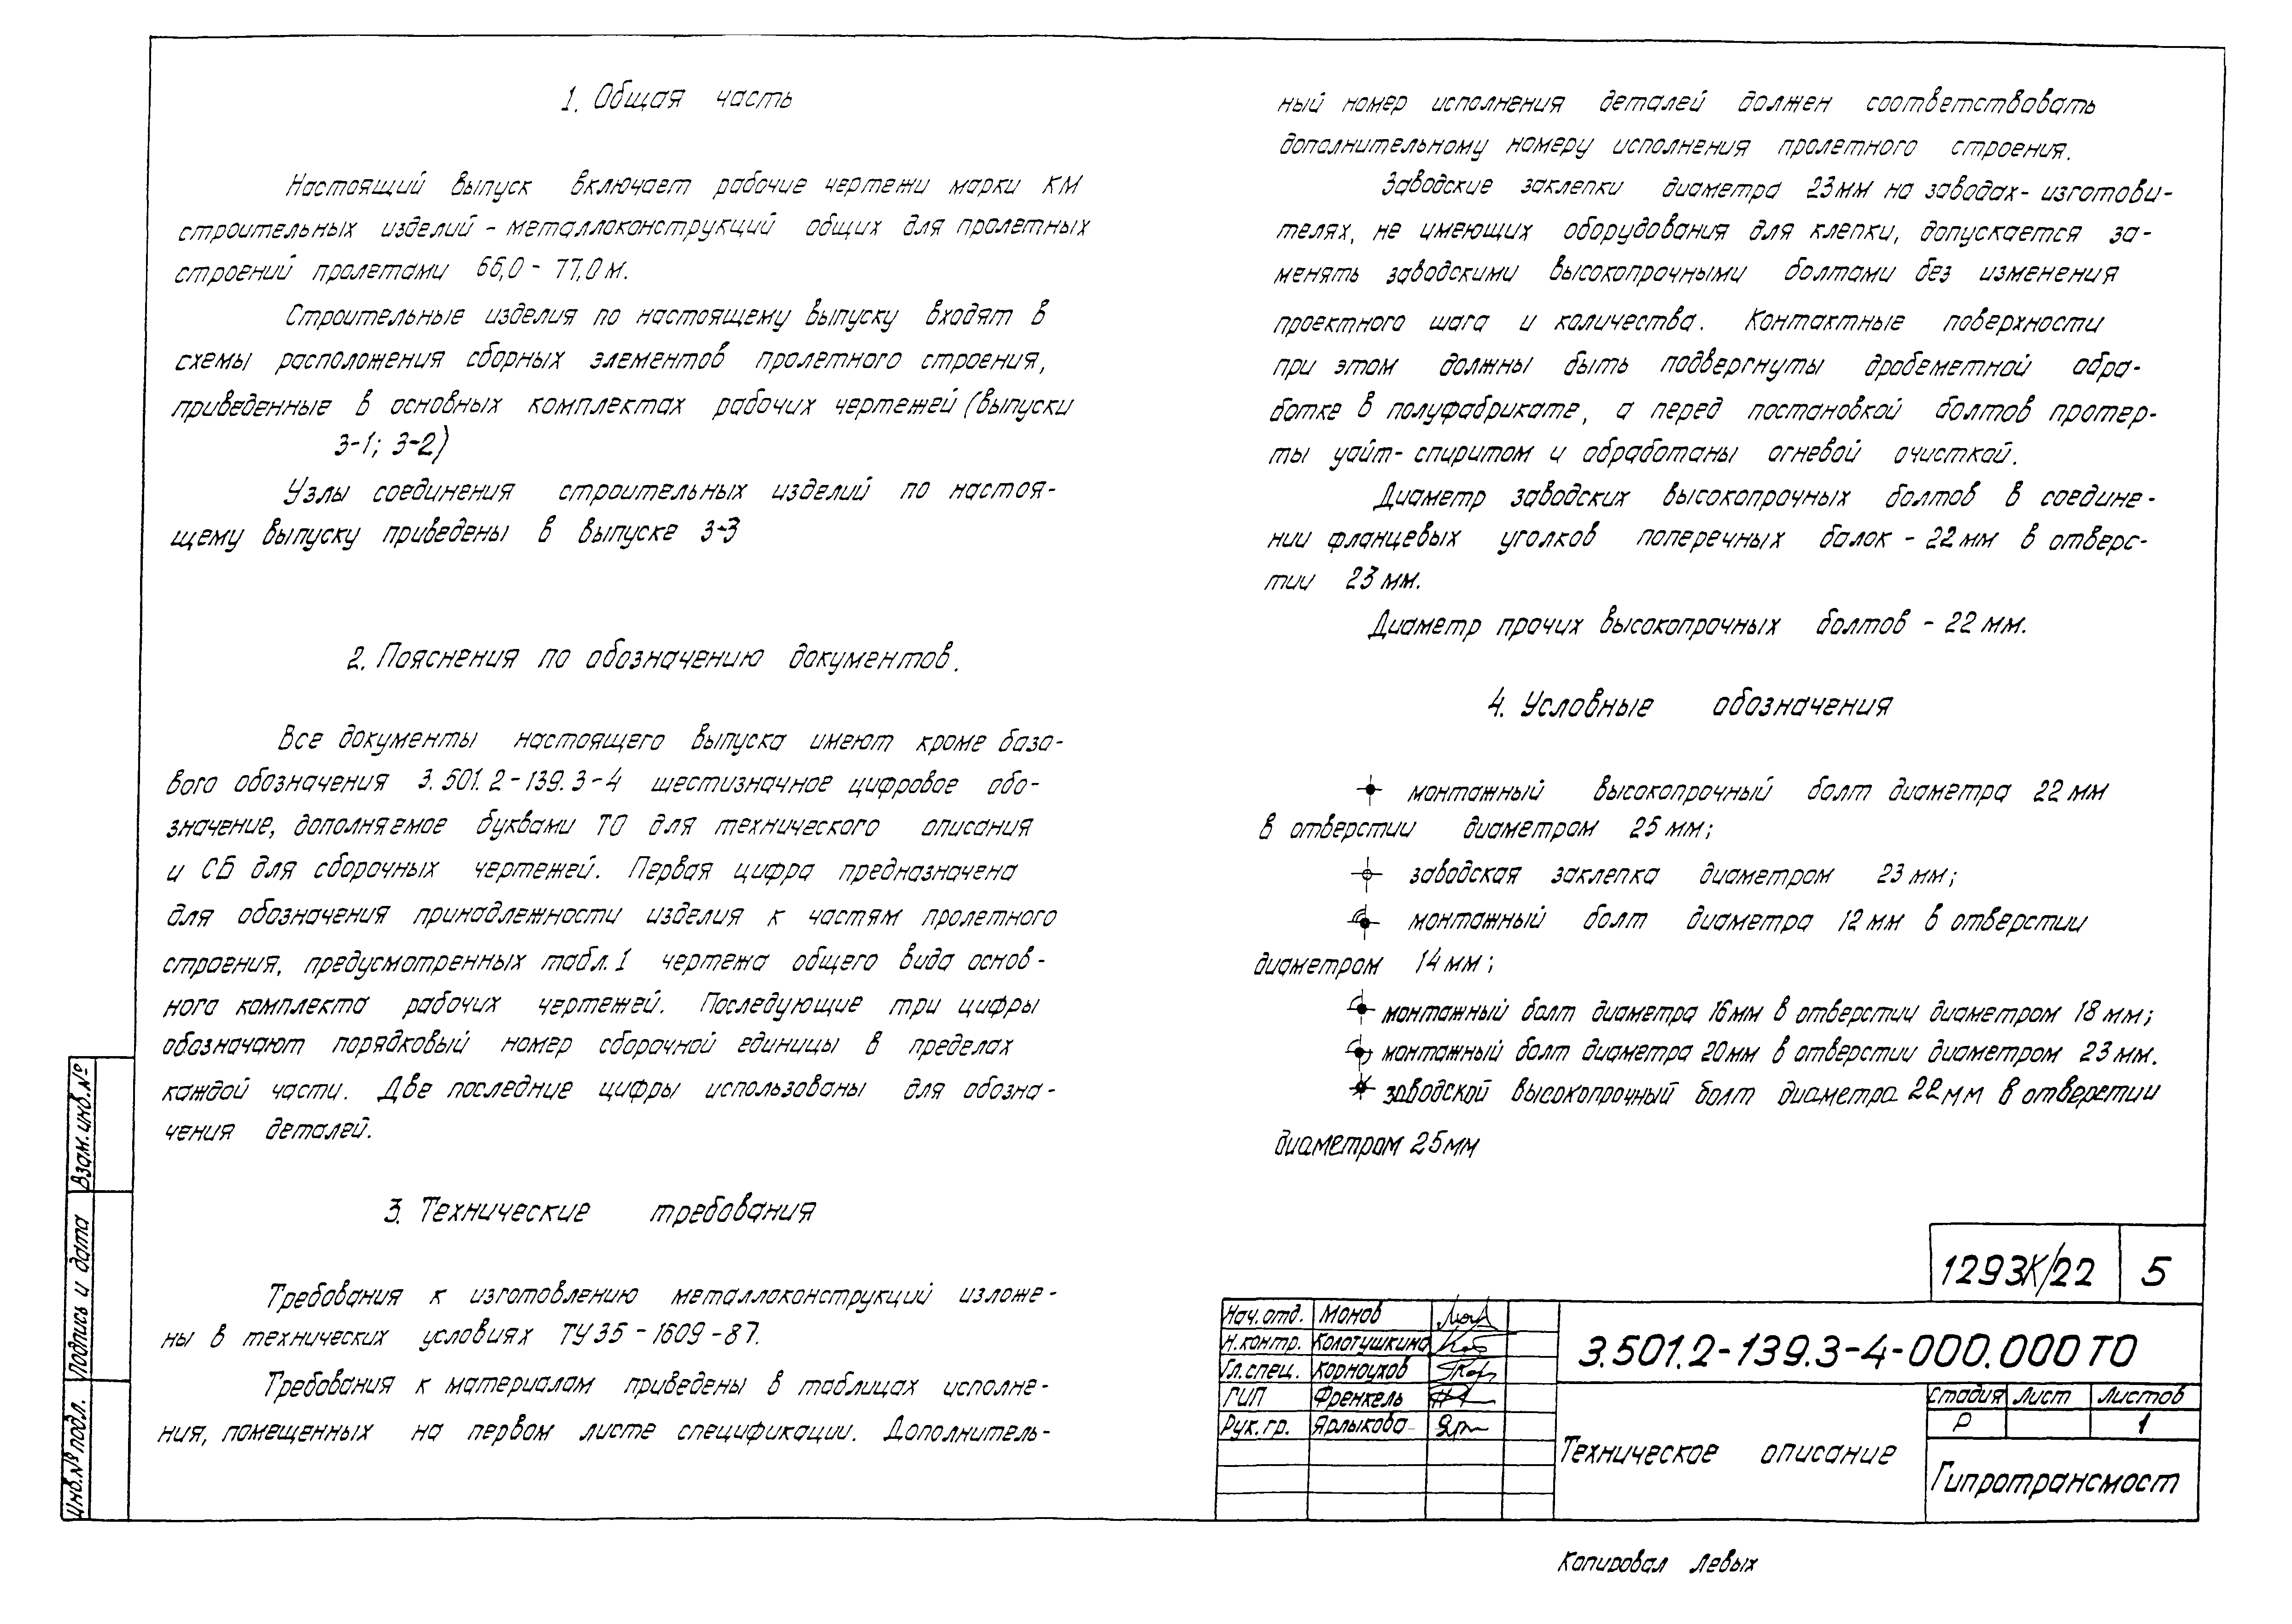 1. Общая часть
Настоящий выпуск включает рабочие чертежи марки КМ
строительных изделий - металлоконструкций общих для пролетных
строений пролетами 66,0 - 77,0 м.
Строительные изделия по настоящему выпуску входят в
схемы расположения сборных элементов пролетного строения,
приведенные в основных комплектах рабочих чертежей (выпуски
3-1; 3-2)
Узлы соединения строительных изделий по настоя-
щему выпуску приведены в выпуске 3-3
2. Пояснения по обозначению документов.
Все документы настоящего выпуска имеют кроме базо-
вого обозначения 3.501.2-139.3-4 шестизначное цифровое обо-
значение, дополняемое буквами ТО для технического описания
и СБ для сборочных чертежей. Первая цифра предназначена
для обозначения принадлежности изделия к частям пролетного
строения, предусмотренных табл. 1 чертежа общего вида основ-
ного комплекта рабочих чертежей. Последующие три цифры
обозначают порядковый номер сборочной единицы в пределах
каждой части. Две последние цифры использованы для обозна-
чения деталей.
3. Технические требования
Требования к изготовлению металлоконструкций изложе-
ны в технических условиях ТУ 35-1609-87.
Требования к материалам приведены в таблицах исполне-
ния, помещенных на первом листе спецификации. Дополнитель-
ный номер исполнения деталей должен соответствовать
дополнительному номеру исполнения пролетного строения.
Заводские заклепки диаметра 23мм на заводах-изготови-
телях, не имеющих оборудования для клепки, допускается за-
менять заводскими высокопрочными болтами без изменения
проектного шага и количества. Контактные поверхности
при этом должны быть подвергнуты дробеметной обра-
ботке в полуфабрикате, а перед постановкой болтов протер-
ты уайт-спиритом и обработаны огневой очисткой.
Диаметр заводских высокопрочных болтов в соедине-
нии фланцевых уголков поперечных балок - 22 мм в отверс-
тии 23 мм.
Диаметр прочих высокопрочных болтов - 22 мм.
4. Условные обозначения
монтажный высокопрочный болт диаметра 22 мм
в отверстии диаметром 25 мм;
заводская заклепка диаметром 23 мм;
монтажный болт диаметра 12 мм в отверстии
диаметром 14 мм;
монтажный болт диаметра 16мм в отверстии диаметром 18 мм;
монтажный болт диаметра 20мм в отверстии диаметром 23 мм.
заводской высокопрочный болт диаметра 22мм в отверстии
диаметром 25мм
1293К/22 5
Нач. отд. Монов
Н.контр. Колотушкина
Гл.спец. Корноухов
ГИП Френкель
Рук. гр. Ярлыкова
3.501.2-139.3-4-000.000 ТО
Техническое описание
Стадия Лист Листов
Р 1
Гипротрансмост
Взам. инв. №
Подпись и дата
Инв. № подл.
Копировал Левых